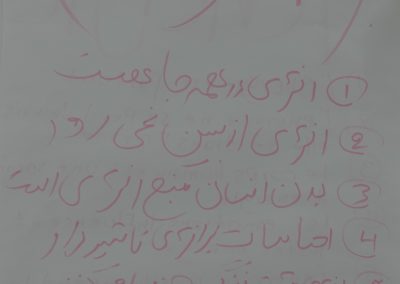 ① انرژی در همه جا هست
② انرژی از بین نمی رود
③ بدن انسان منبع انرژی است
④ احساسات برانرژی تاثیر دارد